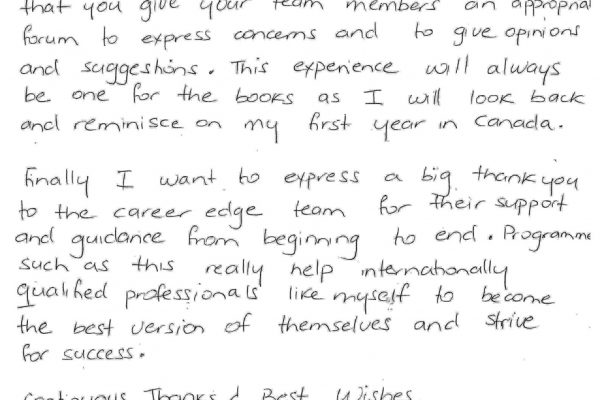 that you give your team members an appropriat
forum to express concerns and to give opinions
and suggestions. This experience will always
be one for the books as I will look back
and reminisce on my first year in Canada.
Finally I want to express a big thank you
to the career edge team for their support
and guidance from beginning to end. Programme
such as this really help internationally
qualified professionals like myself to become
the best version of themselves and strive
for success.
Continuous Thanks & Best Wishes